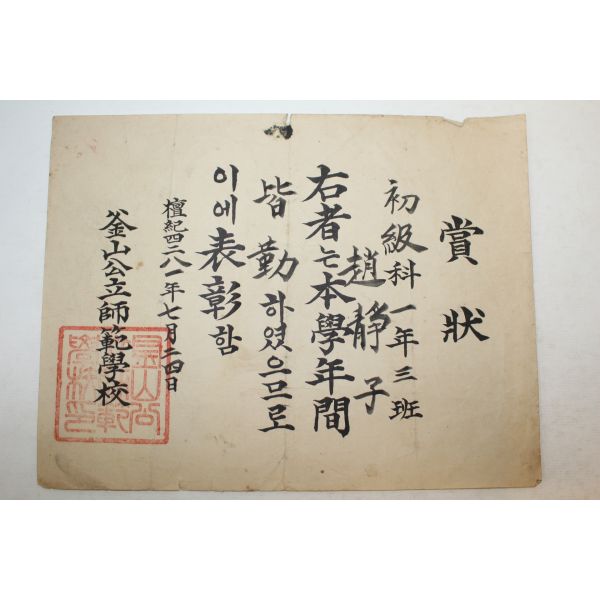 賞狀
初級科一年三班
趙靜子
右者는本學年間
皆勤하였으므로
이에表彰함
檀紀四二八一年七月二四日
釜山公立師範學校